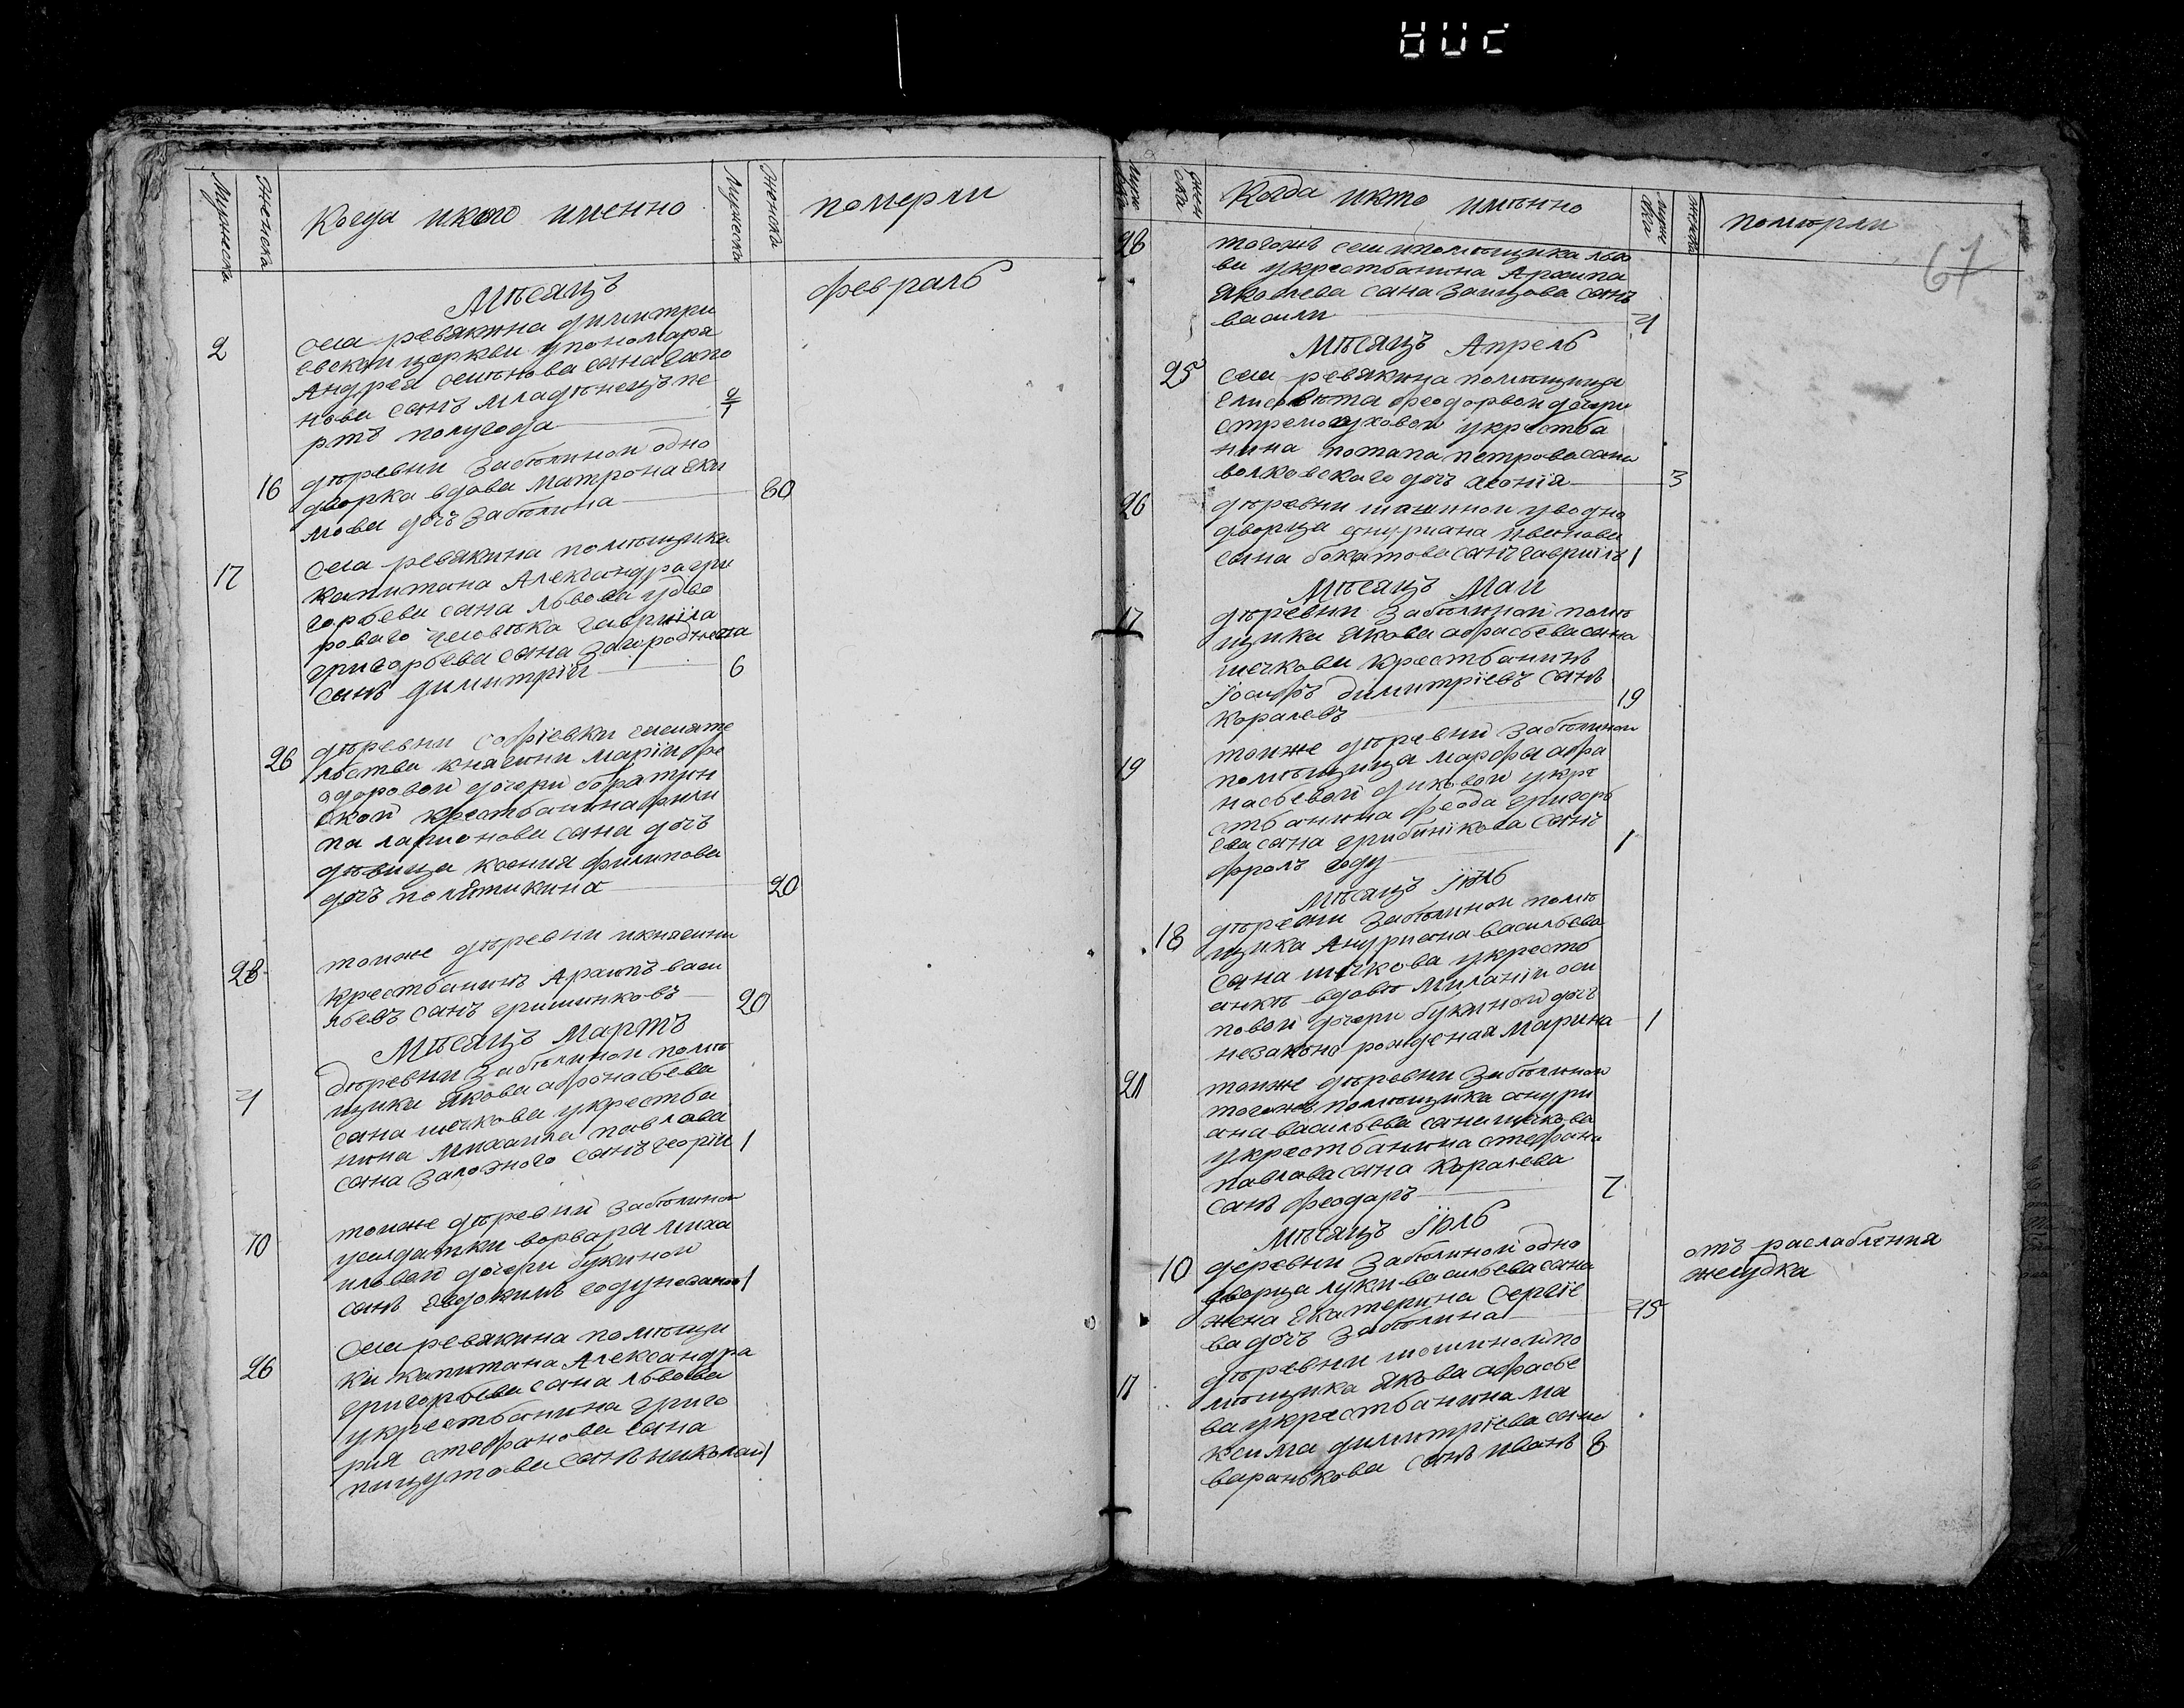 Мужеска
Женска
Когда икого именно
Мужеска
Женска
померли
Мѣсяцъ
февраль
2
села ревякина димитри
евской церкви упономаря
Андрея семѣнова сына гапо
нова сынъ младѣнецъ пе
ртъ полугода
16
дѣревни Забѣлиной одно
дворка вдова Матрона яки
мова дочь Забѣлина
60
17
села ревякина помѣщика
капитана Александра гри
горьева сына львова удво
роваго человѣка гавриила
григорьева сына
сынъ димитрiй
6
26
дѣревни софiевки сиятe
льства княгини марiи фе
одоровой дочери борятин
ской крестьянина фили
па ларионова сына дочь
дѣвица ксения филипова
дочь полятикина
20
28
тойже дѣревни икнягини
крестьянинъ Архипъ васи
льевъ сынъ гришинковъ
20
Мѣсяцъ Мартъ
4
дѣревни Забѣлиной помѣ
щика якова афонасьева
сына шечкова укрестья
нина Михаила павлова
сына Залозного сынъ георгiи
1
10
тойже дѣревни Забѣлиной
усалдатки варвара миха
иловой дочери букиной
сынъ Евдокимъ году
1
26
села ревякина помѣщи
ка капитана Александра
григорьева сына львова
укрестьянина григо
рия стефанова сына
пищутова сынъ николай
1
Муже
ска
жен
ска
Когда икто имѣнно
муже
ска
женска
помѣрли
67
28
тогожъ села ипомѣщика льво
ва укрестьянина Архипа
яковлева сына Заицова сынъ
васили
4
Мѣсяцъ Апрель
25
села ревякина помѣщицы
Елисавѣта феодорвой дочри
стремоуховой укрестья
нина потапа петрова сына
волковского дочь агонiя
3
26
дѣревни шашиной уводно
дворца андриана иванова
сына бокатова сынъ гаврiилъ
1
Мѣсяцъ Маи
17
дѣревни Забѣлиной помѣ
щика якова афрасьева сына
шечкова крестьянинъ
Iосифъ димитрiевъ сынъ
Каралевъ
19
19
тоиже дѣревни Забѣлиной
помѣщица марфы афа
насьевой диковой укре
стьянина феода григорь
ева сына грибинiкова сынъ
фролъ году
1
Мѣсяцъ Iюнь
18
дѣревни Забѣлиной помѣ
щика Андриана васильева
сына шечкова укресть
янкѣ вдовѣ миланiи оси
повой дочери букиной дочь
незаконо рожденая Марина
1
21
тоиже дѣревни Забѣлиной
тогожъ помѣщика андри
ана васильева сына щечкова
укрестьянина стефана
павлова сына Каралева
сынъ феодаръ
7
Мѣсяцъ Iюль
10
деревни Забѣлиной одно
дворца луки васильева сына
жена Екатерина Сергiе
ва дочь Забѣлина
45
отъ раслабления
желудка
11
дѣревни шошиной по
мѣщика якова афрасье
ва укрестьянина ма
ксима димитрiева сына
варанькова сынъ иванъ
8